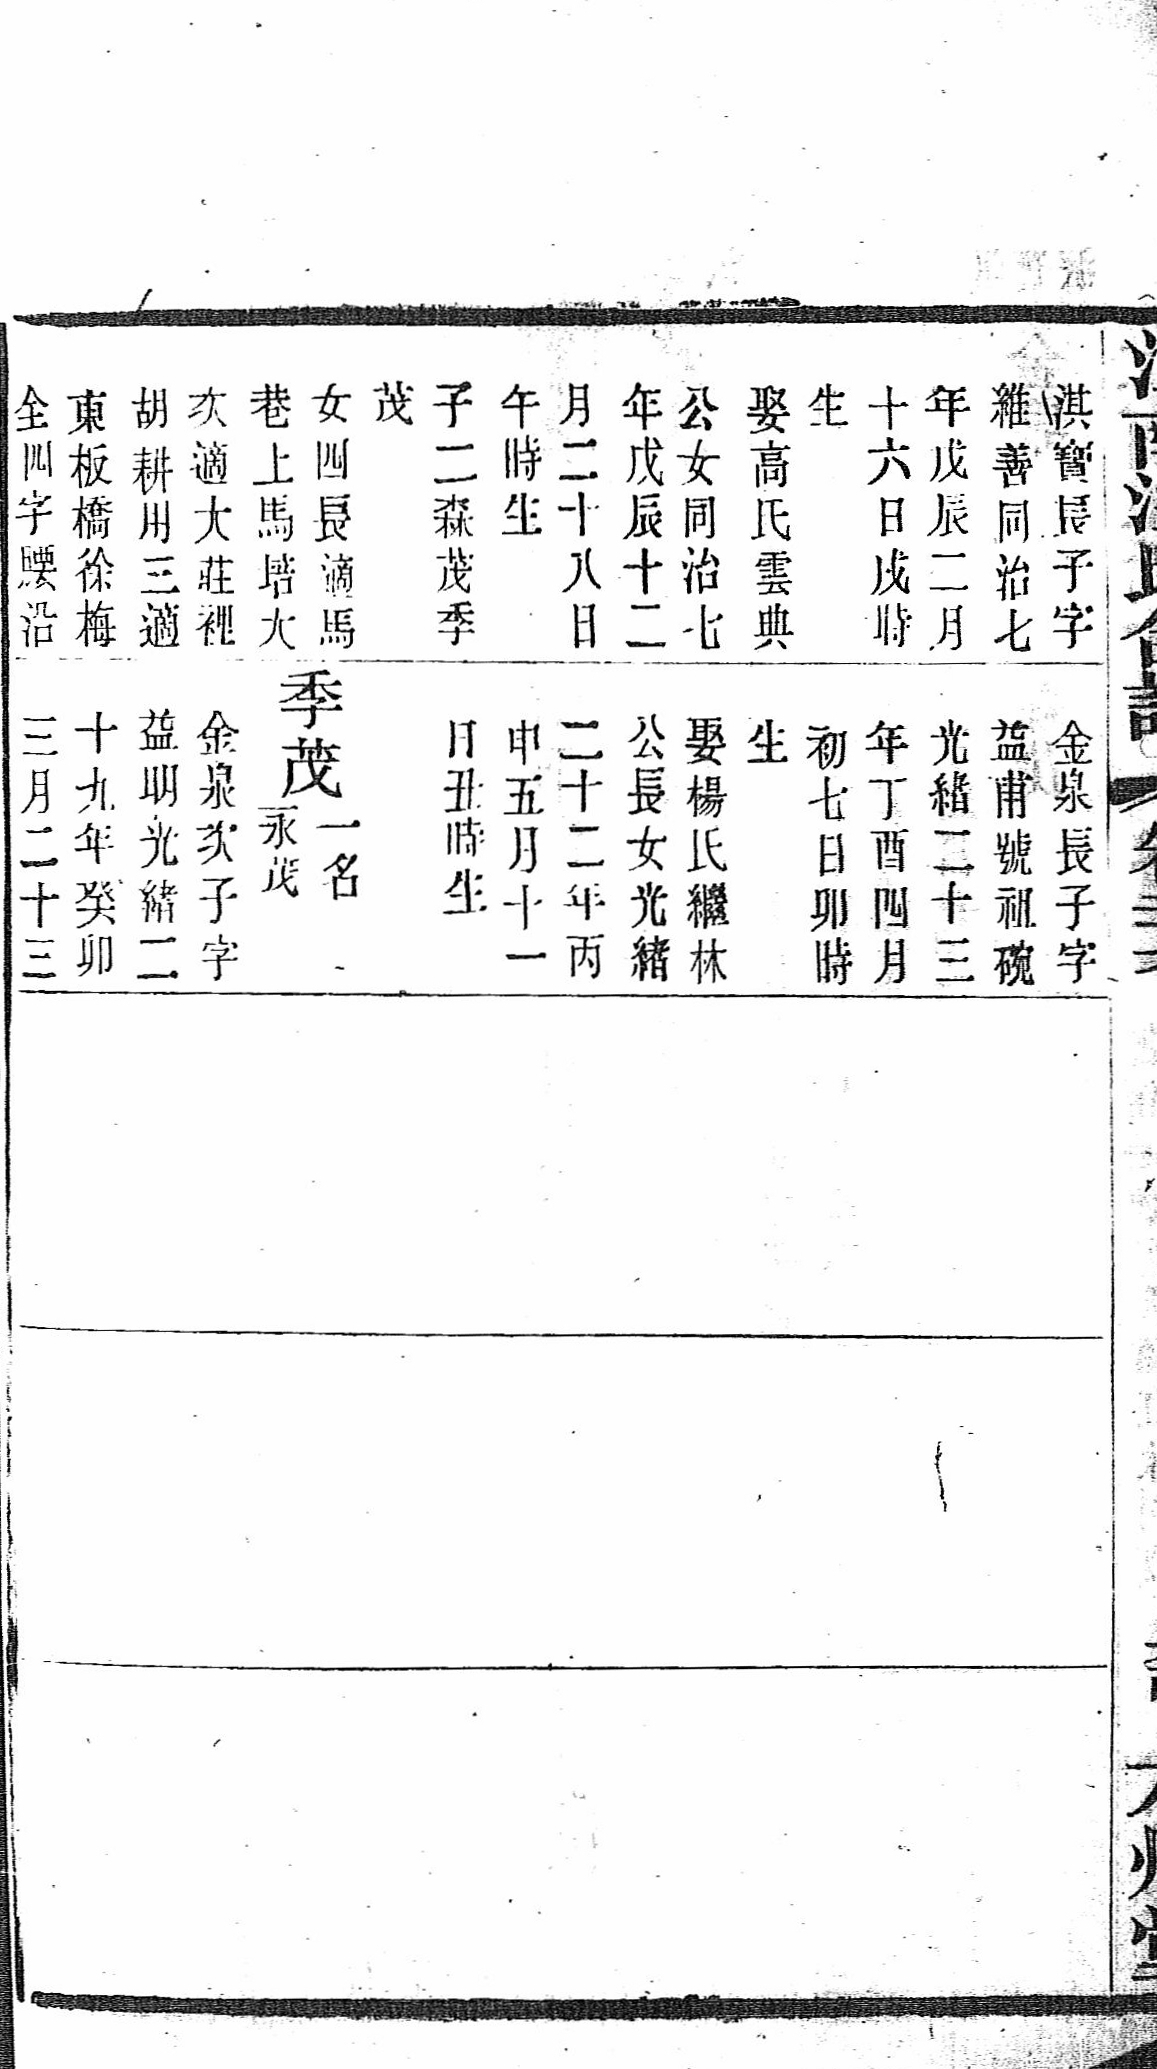 淇寶長子字
維善同治七
年戊辰二月
十六日戌時
生
娶高氏雲典
公女同治七
年戊辰十二
月二十八日
午時生
子二森茂季
茂
女四長適馬
巷上馬培大
次適大莊裡
胡耕用三適
東板橋徐梅
全四字腰沿
金泉長子字
益甫號祖碗
光緒二十三
年丁酉四月
初七日卯時
生
娶楊氏繼林
公長女光緒
二十二年丙
申五月十一
日丑時生
季茂
一名
永茂
金泉次子字
益明光緒二
十九年癸卯
三月二十三